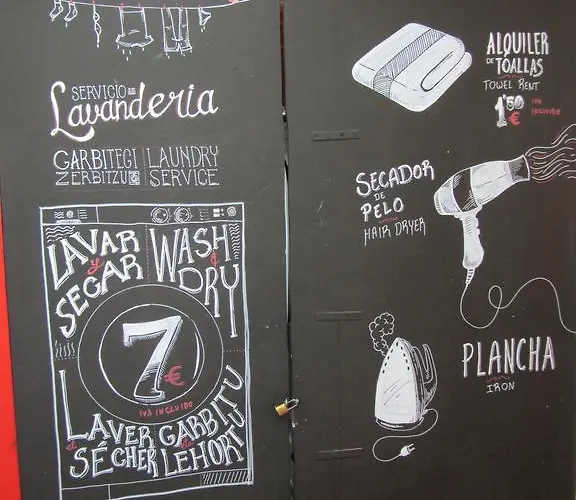 SERVICIO DE
Lavanderia
GARBITEGI
ZERBITZUA
LAUNDRY
SERVICE
LAVAR
y
SECAR
WASH
&
DRY
7€
IVA INCLUIDO
LAVER
et
SÉCHER
GARBITU
eta
LEHORTU
ALQUILER
DE TOALLAS
TOWEL RENT
1'50
€
IVA
INCLUIDO
SECADOR
DE
PELO
HAIR DRYER
PLANCHA
IRON